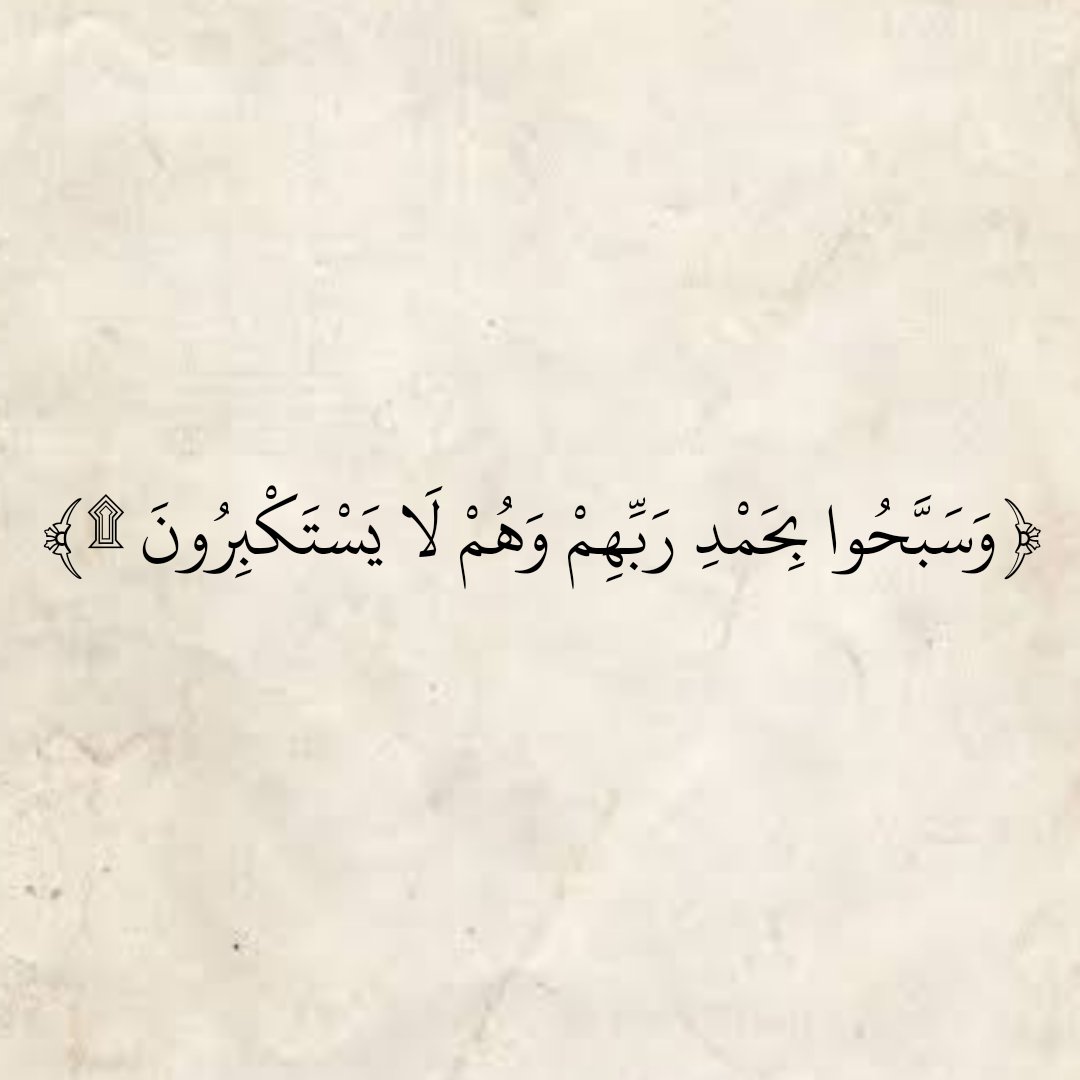 ﴿ وَسَبَّحُوا بِحَمْدِ رَبِّهِمْ وَهُمْ لَا يَسْتَكْبِرُونَ ۩ ﴾